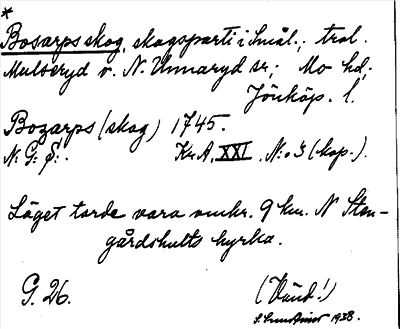 *
Bosarps skog, skogsparti i Smål.; trol.
Mulseryd v. N. Unnaryd sn; Mo hd;
Jönköp. l.
Bozarps (skog) 1745.
N: G: S:. Kr. A. XXI. N:o 3 (kop.).
Läget torde vara omkr. 9 km. N Sten-
gårdshults kyrka.
G. 26. (Vänd!)
1938.